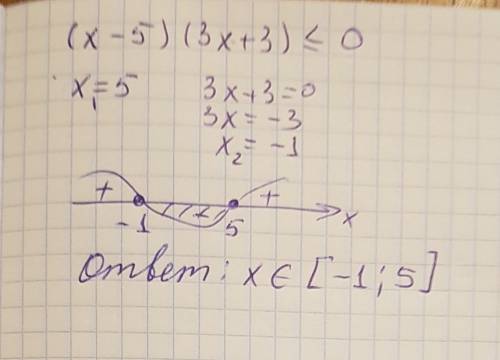 (x - 5) (3x + 3) ≤ 0
x₁ = 5 3x + 3 = 0
3x = -3
x₂ = -1
+ +
-1 5 x
Ответ: x ∈ [-1; 5]